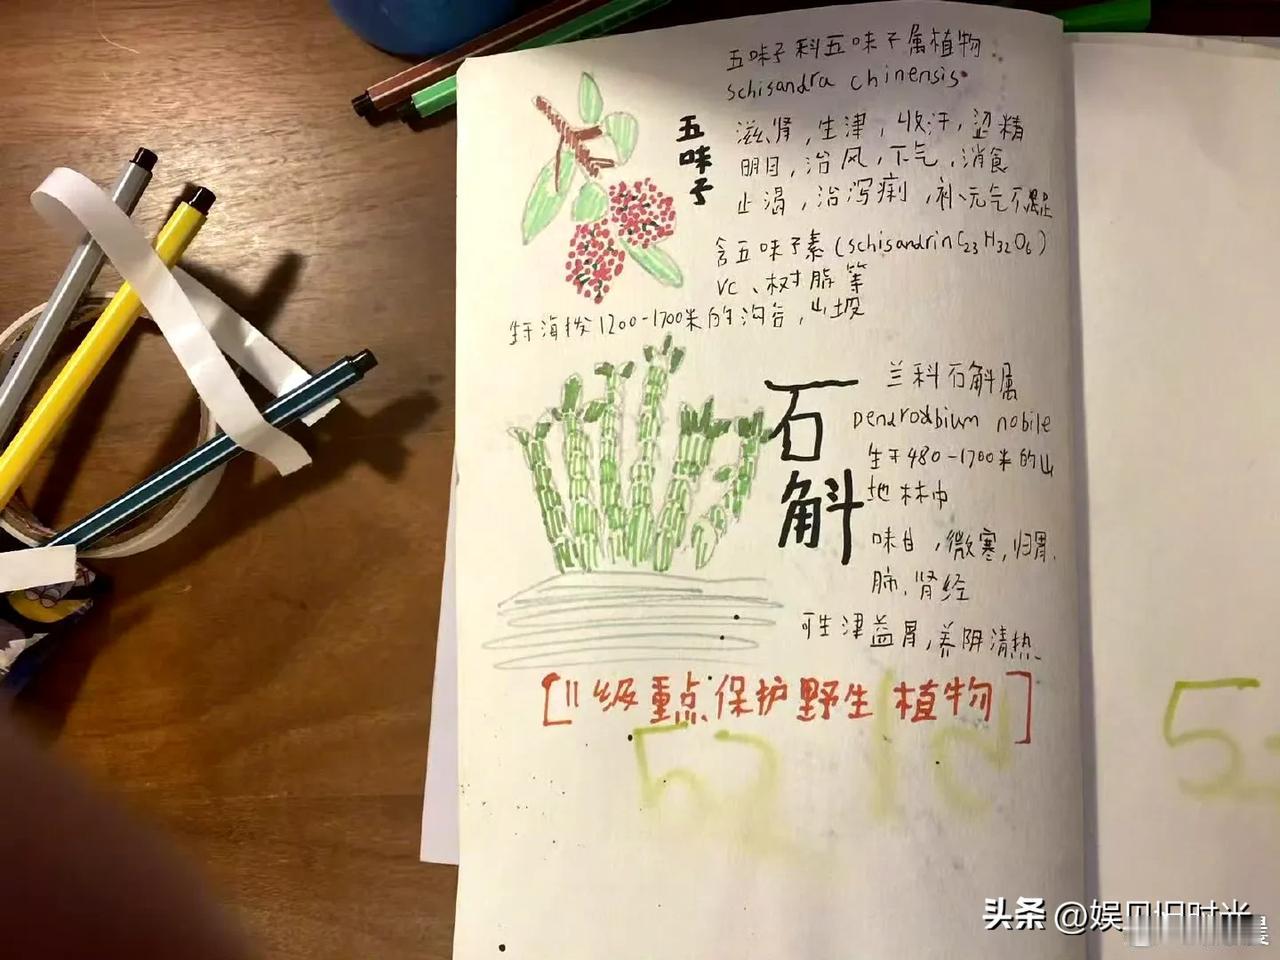 五味子科五味子属植物
schisandra chinensis
五味子
滋肾,生津,收汗,涩精
明目,治风,下气,消食
止渴,治泻痢,补元气不足
含五味子素(schisandrin C23H32O6)
VC、树脂等
生于海拔1200-1700米的沟谷,山坡
石斛
兰科石斛属
Dendrodbium nobile
生于480-1700米的山
地林中
味甘,微寒,归胃、
肺、肾经
可生津益胃,养阴清热、
[II级重点保护野生植物]
52
5
头条 @娱贝旧时光